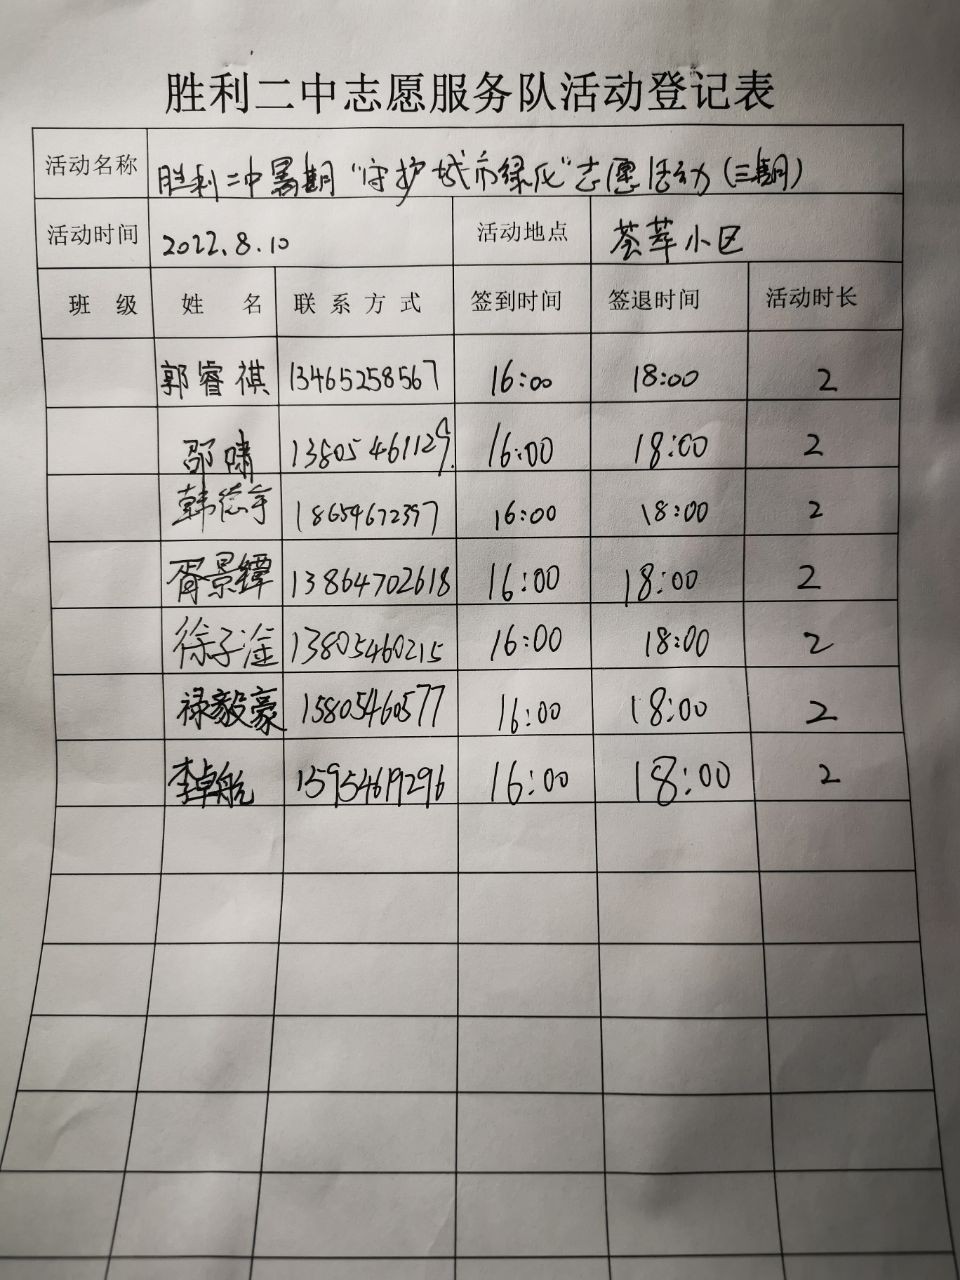 胜利二中志愿服务队活动登记表
活动名称 胜利二中暑期“守护城市绿化”志愿活动(三期)
活动时间 2022.8.10 活动地点 荟萃小区
班级 姓名 联系方式 签到时间 签退时间 活动时长
郭睿祺 13465258567 16:00 18:00 2
邵啸 13805461129. 16:00 18:00 2
韩德宇 18654672397 16:00 18:00 2
胥景镡 13864702618 16:00 18:00 2
徐子淦 13805460215 16:00 18:00 2
禄毅豪 15805460577 16:00 18:00 2
李卓航 15954619296 16:00 18:00 2